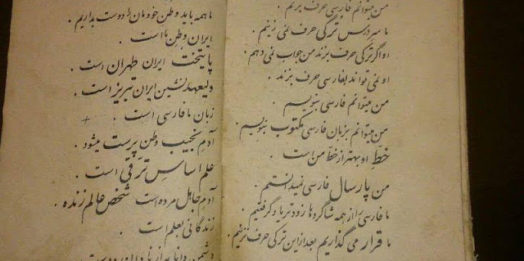 من میتوانم فارسی حرف بزنم.
ما سر درس ترکی حرف نمی زنیم.
او اگر ترکی حرف بزند من جواب نمی دهم.
او نمی تواند بفارسی حرف بزند.
من میتوانم فارسی بنویسم.
من میتوانم بزبان فارسی مکتوب بنویسم.
خط او بهتر از خط من است.
من پارسال فارسی نمیدانستم.
ما فارسی را از همه شاگردها زودتر یاد گرفتیم.
ما قرار می گذاریم بعد از این ترکی حرف نزنیم.
ما همه باید وطن خودمان را دوست بداریم.
ایران وطن ما است.
پایتخت ایران طهران است.
ولیعهد نشین ایران تبریز است.
زبان ما فارسی است.
آدم نجیب وطن پرست میشود.
علم اساس ترقی است.
آدم جاهل مرده است شخص عالم زنده.
زندگانی تعلم است.
دشمن دانا به از نادان دوست